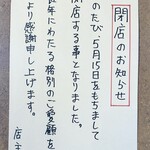 閉店のお知らせ
このたび、5月15日をもちまして
閉店する事となりました。
長年にわたる格別のご愛顧を
より感謝申し上げます。
店主